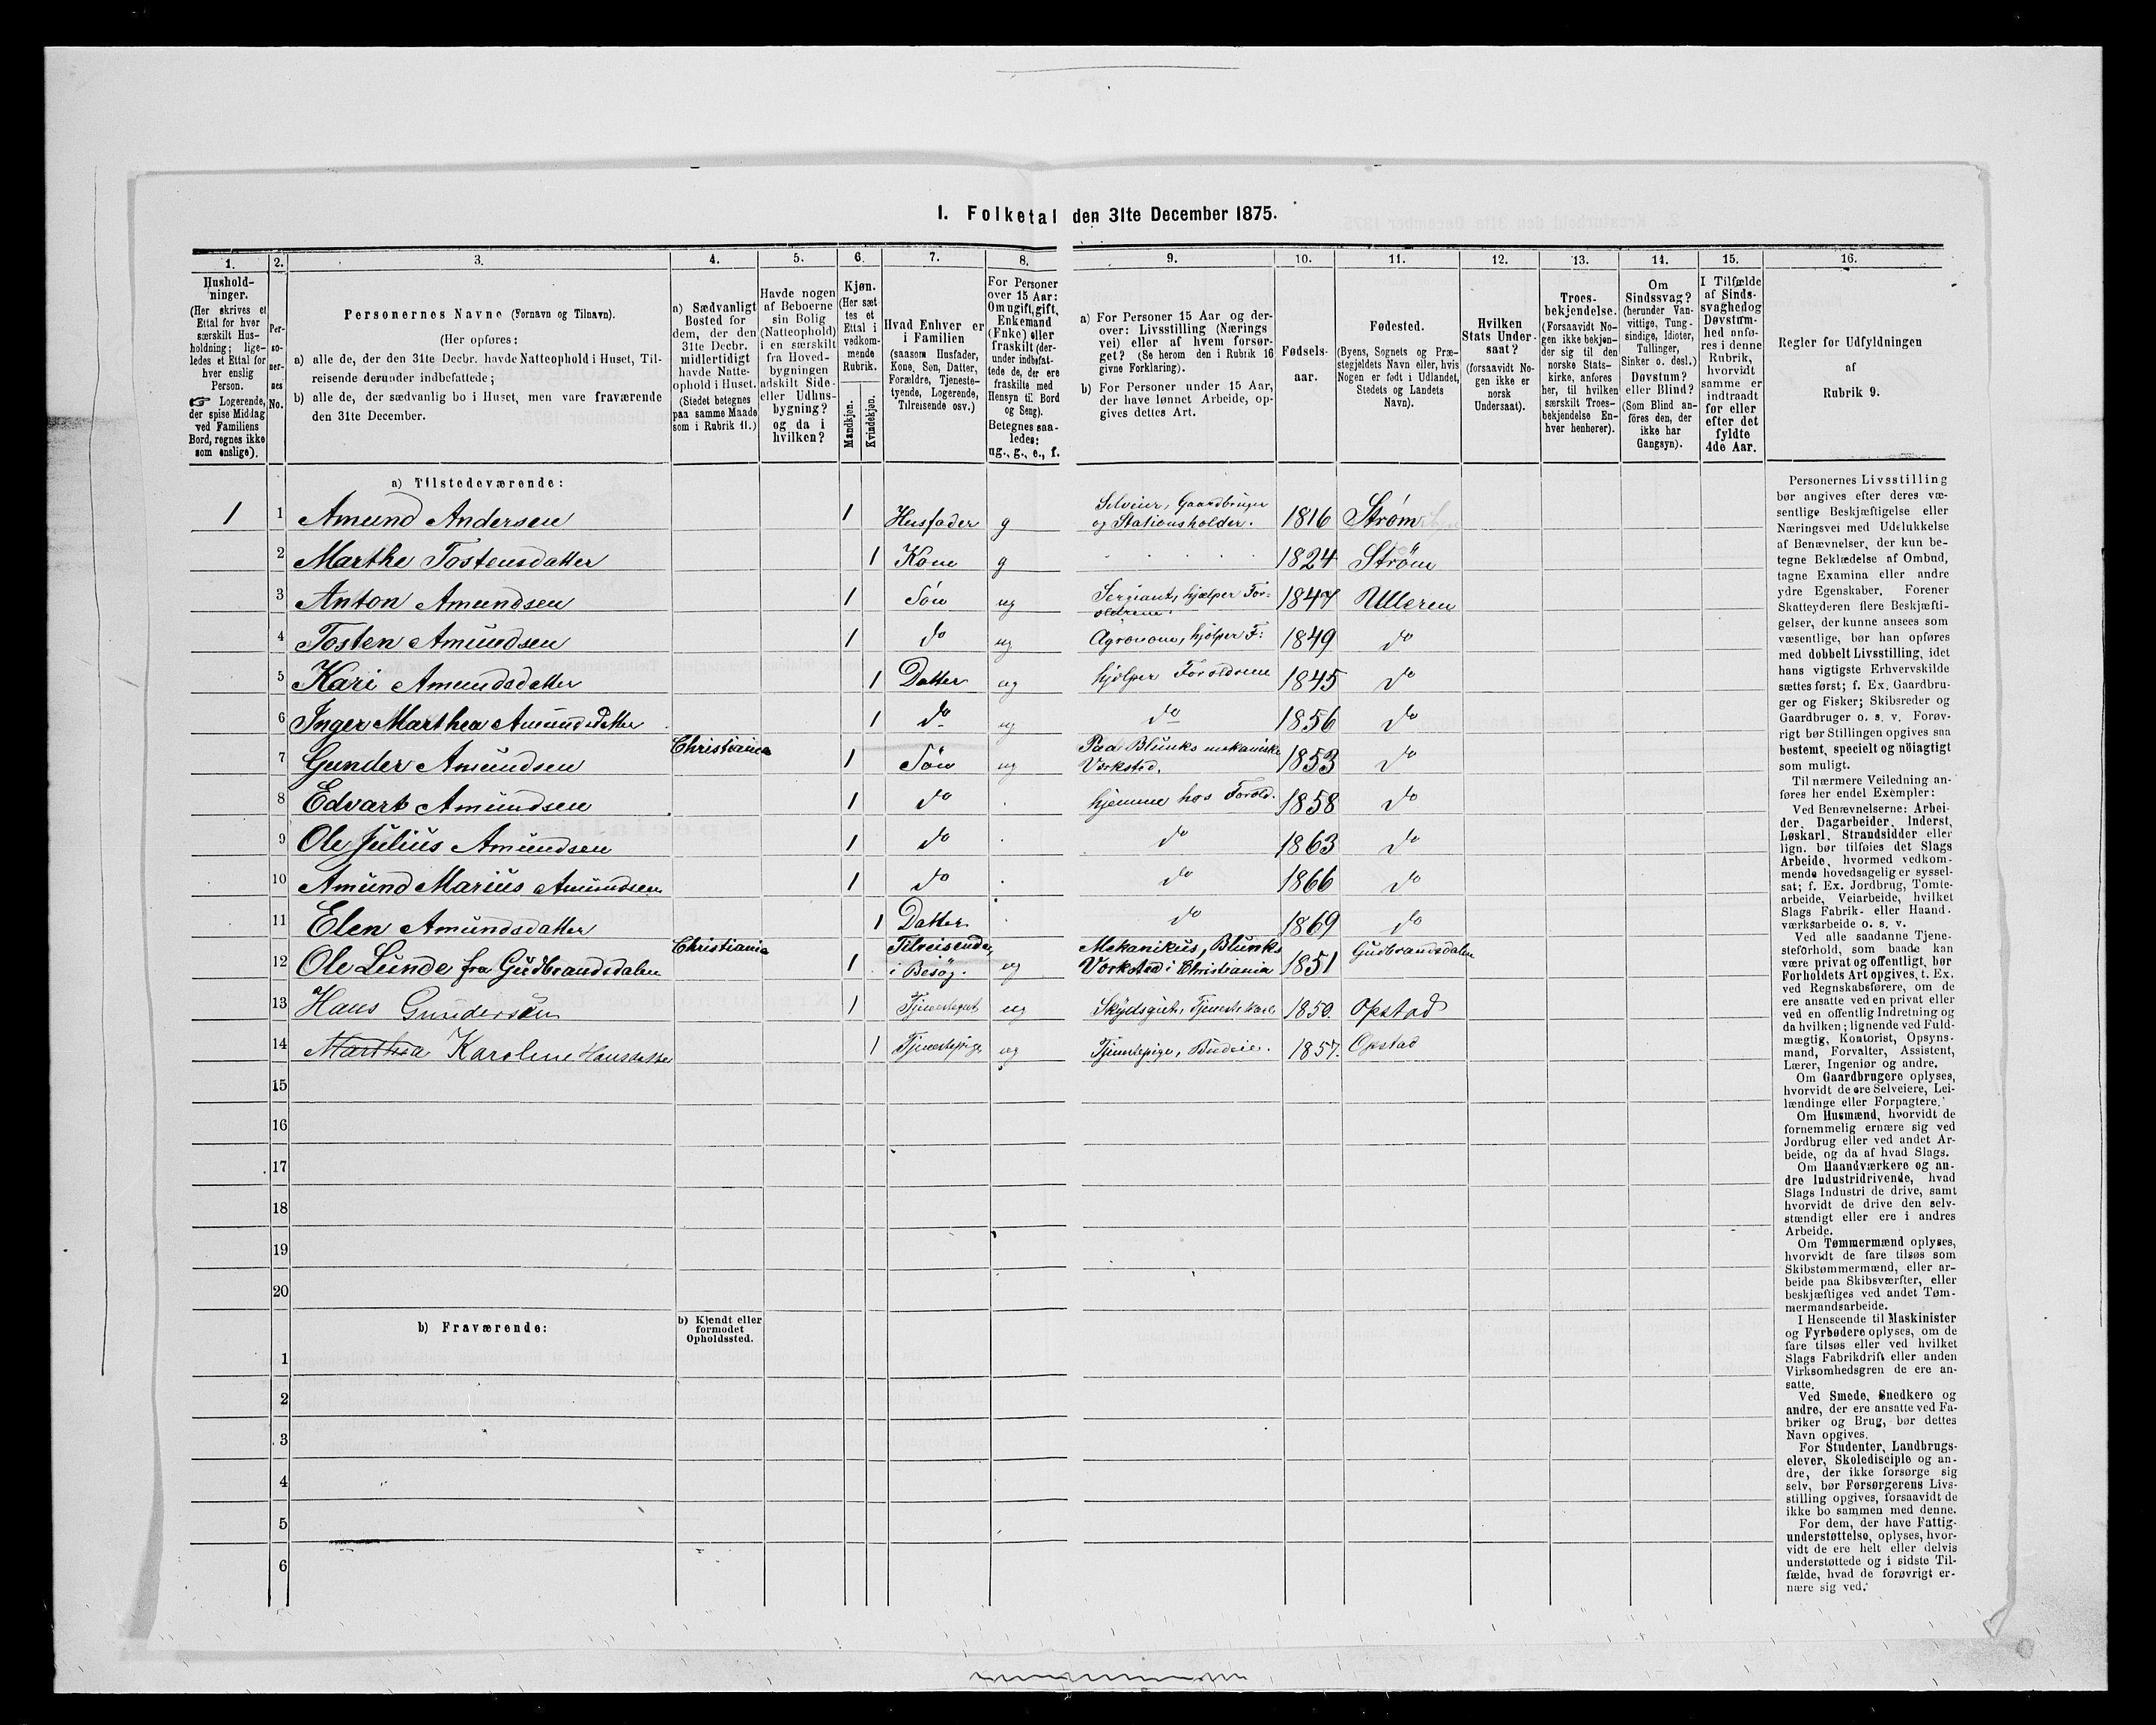 1. Folketal den 31te December 1875.
1. 2. 3. 4. 5. 6. 7. 8. 9. 10. 11. 12. 13. 14. 15. 16.
Hushold-
ninger.
(Her skrives et
Ettal for hver
særskilt Hus-
holdning; lige-
ledes et Ettal for
hver enslig
Person.
☞ Logerende,
der spise Middag
ved Familiens
Bord, regnes ikke
som enslige).
Per-
so-
ner-
nes
No.
Personernes Navne (Fornavn og Tilnavn).
(Her opføres:
a) alle de, der den 31te Decbr. havde Natteophold i Huset, Til-
reisende derunder indbefattede;
b) alle de, der sædvanlig bo i Huset, men vare fraværende
den 31te December.
a) Sædvanligt
Bosted for
dem, der den
31te Decbr.
midlertidigt
havde Natte-
ophold i Huset.
(Stedet betegnes
paa samme Maade
som i Rubrik 11.)
Havde nogen
af Beboerne
sin Bolig
(Natteophold)
i en særskilt
fra Hoved-
bygningen
adskilt Side-
eller Udhus-
bygning?
og da i
hvilken?
Kjøn.
(Her sæt
tes et
Ettal i
vedkom-
mende
Rubrik.
Mandkjøn.
Kvindekjøn.
Hvad Enhver er
i Familien
(saasom Husfader,
Kone, Søn, Datter,
Forældre, Tjeneste-
tyende, Logerende,
Tilreisende osv.)
For Personer
over 15 Aar:
Om ugift, gift,
Enkemand
(Enke) eller
fraskilt (der-
under indbefat-
tede de, der ere
fraskilte med
Hensyn til Bord
og Seng).
Betegnes saa-
ledes:
ug., g., e., f.
a) For Personer 15 Aar og der-
over: Livsstilling (Nærings
vei) eller af hvem forsør-
get? (Se herom den i Rubrik 16
givne Forklaring).
b) For Personer under 15 Aar,
der have lønnet Arbeide, op-
gives dettes Art.
Fødsels-
aar.
Fødested.
(Byens, Sognets og Præ-
stegjeldets Navn eller, hvis
Nogen er født i Udlandet,
Stedets og Landets
Navn).
Hvilken
Stats Under-
saat?
(forsaavidt No-
gen ikke er
norsk
Undersaat).
Troes-
bekjendelse.
(Forsaavidt No-
gen ikke bekjen-
der sig til den
norske Stats-
kirke, anføres
her, til hvilken
særskilt Troes-
bekjendelse En-
hver henhører).
Om
Sindssvag?
(herunder Van-
vittige, Tung-
sindige, Idioter,
Tullinger,
Sinker o. desl.)
Døvstum?
eller Blind?
(Som Blind an-
føres den, der
ikke har
Gangsyn).
I Tilfælde
af Sinds-
svaghed og
Døvstum-
hed anfø-
res i denne
Rubrik,
hvorvidt
samme er
indtraadt
før eller
efter det
fyldte
4de Aar.
Regler for Udfyldningen
af
Rubrik 9.
a) Tilstedeværende:
1 1 Amund Andersen 1 Husfader g Selveier, Gaardbruger og Stationsholder. 1816 Strøm
2 Marthe Tostensdatter 1 Kone g 1824 Ström
3 Anton Amundsen 1 Sön ug Sergiant, hjælper For- oldrene 1847 Ulleren
4 Tosten Amundsen 1 do ug Agronom, hjolper F: 1849 do
5 Kari Amundsdatter 1 Datter ug hjolper Foroldrene 1845 do
6 Inger Marthea Amundsdatter 1 do ug do 1856 do
7 Gunder Amundsen Christiania 1 Sön ug Paa Blunks mekaniske Vorksted. 1853 do
8 Edvart Amundsen 1 do hjemme hos Forold. 1858 do
9 Ole Julius Amundsen 1 do do 1863 do
10 Amund Marius Amundsen 1 do do 1866 do
11 Elen Amundsdatter 1 Datter do 1869 do
12 Ole Lunde fra Gudbrandsdalen Christiania 1 Tilreisende, i Besög. ug Mekanikus, Blunks Vorksted i Christiania 1851 Gudbrandsdalen
13 Hans Gundersön 1 Tjenestegut ug Skydsgut, Tjeneste Karl 1850. Opstad
14 Marthea Karoline Hansdatter 1 Tjenestepige ug Tjenstepige, Budeie. 1857. Opstad
15
16
17
18
19
20
b) Fraværende:
b) Kjendt eller
formodet
Opholdssted.
1
2
3
4
5
6
Personernes Livsstilling
bør angives efter deres væ-
sentlige Beskjæftigelse eller
Næringsvei med Udelukkelse
af Benævnelser, der kun be-
tegne Beklædelse af Ombud,
tagne Examina eller andre
ydre Egenskaber. Forener
Skatteyderen flere Beskjæfti-
gelser, der kunne ansees som
væsentlige, bør han opføres
med dobbelt Livsstilling, idet
hans vigtigste Erhvervskilde
sættes først; f. Ex. Gaardbru-
ger og Fisker; Skibsreder og
Gaardbruger o. s. v. Forøv-
rigt bør Stillingen opgives saa
bestemt, specielt og nöiagtigt
som muligt.
Til nærmere Veiledning an-
føres her endel Exempler:
Ved Benævnelserne: Arbei-
der, Dagarbeider, Inderst,
Løskarl, Strandsidder eller
lign. bør tilføies det Slags
Arbeide, hvormed vedkom-
mende hovedsagelig er syssel-
sat; f. Ex. Jordbrug, Tomte-
arbeide, Veiarbeide, hvilket
Slags Fabrik- eller Haand-
værksarbeide o. s. v.
Ved alle saadanne Tjene-
steforhold, som baade kan
være privat og offentligt, bør
Forholdets Art opgives, t. Ex.
ved Regnskabsførere, om de
ere ansatte ved en privat eller
ved en offentlig Indretning og
da hvilken; lignende ved Fuld-
mægtig, Kontorist, Opsyns-
mand, Forvalter, Assistent,
Lærer, Ingeniør og andre.
Om Gaardbrugere oplyses,
hvorvidt de ere Selveiere, Lei-
lændinge eller Forpagtere.
Om Husmænd, hvorvidt de
fornemmelig ernære sig ved
Jordbrug eller ved andet Ar-
beide, og da af hvad Slags.
Om Haandværkere og an-
dre Industridrivende, hvad
Slags Industri de drive, samt
hvorvidt de drive den selv-
stændigt eller ere i andres
Arbeide.
Om Tømmermænd oplyses,
hvorvidt de fare tilsøs som
Skibstømmermænd, eller ar-
beide paa Skibsværfter, eller
beskjæftiges ved andet Tøm-
mermandsarbeide.
I Henseende til Maskinister
og Fyrbødere oplyses, om de
fare tilsøs eller ved hvilket
Slags Fabrikdrift eller anden
Virksomhedsgren de ere an-
satte.
Ved Smede, Snedkere og
andre, der ere ansatte ved Fa-
briker og Brug, bør dettes
Navn opgives.
For Studenter, Landbrugs-
elever, Skoledisciple og an-
dre, der ikke forsørge sig
selv, bør Forsørgerens Livs-
stilling opgives, forsaavidt de
ikke bo sammen med denne.
For dem, der have Fattig-
understøttelse, oplyses, hvor-
vidt de ere helt eller delvis
understøttede og i sidste Til-
fælde, hvad de forøvrigt er-
nære sig ved.